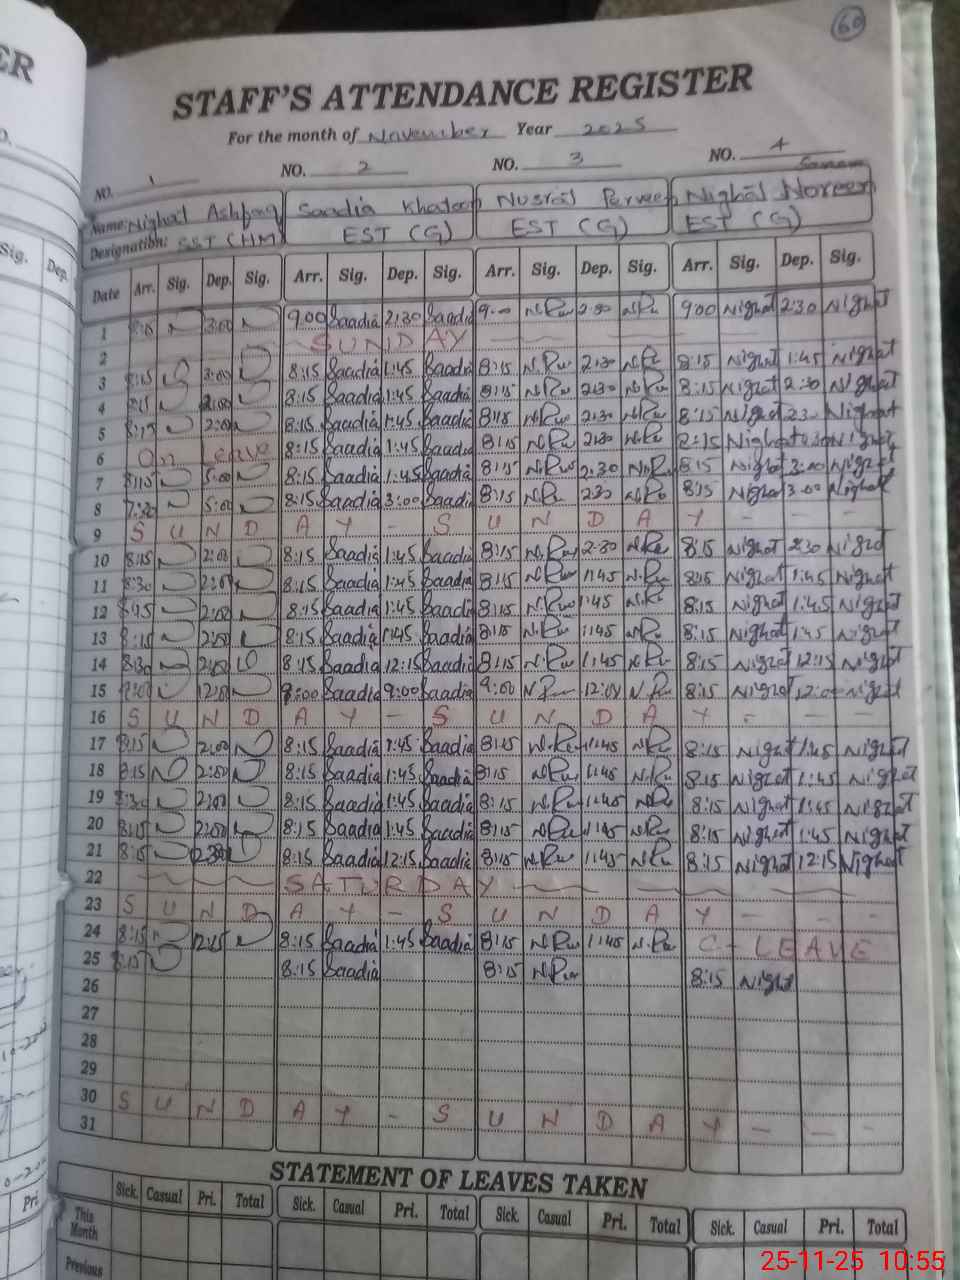 60
STAFF'S ATTENDANCE REGISTER
For the month of November Year 2025
NO. 1 NO. 2 NO. 3 NO. 4
Sanam
Name: Nighat Ashfaq Saadia Khatoon Nusrat Parveen Nighat Noreen
Designation: SST (HM) EST (G) EST (G) EST (G)
Date Arr. Sig. Dep. Sig. Arr. Sig. Dep. Sig. Arr. Sig. Dep. Sig. Arr. Sig. Dep. Sig.
1 8:15 3:00 9:00 Saadia 2:30 Saadia 9:00 2:30 9:00 Nighat 2:30 Nighat
2 SUNDAY
3 8:15 3:00 8:15 Saadia 1:45 Saadia 8:15 2:30 8:15 Nighat 1:45 Nighat
4 8:15 2:00 8:15 Saadia 1:45 Saadia 8:15 2:30 8:15 Nighat 2:30 Nighat
5 8:15 2:00 8:15 Saadia 1:45 Saadia 8:15 2:30 8:15 Nighat 2:30 Nighat
6 On Leave 8:15 Saadia 1:45 Saadia 8:15 2:30 8:15 Nighat Nighat
7 8:15 5:00 8:15 Saadia 1:45 Saadia 8:15 2:30 8:15 Nighat 3:00 Nighat
8 7:30 5:00 8:15 Saadia 3:00 Saadia 8:15 2:30 8:15 Nighat 3:00 Nighat
9 S U N D A Y - S U N D A Y - - -
10 8:15 2:00 8:15 Saadia 1:45 Saadia 8:15 2:30 8:15 Nighat 2:30 Nighat
11 8:30 2:00 8:15 Saadia 1:45 Saadia 8:15 1:45 8:15 Nighat 1:45 Nighat
12 8:15 2:00 8:15 Saadia 1:45 Saadia 8:15 1:45 8:15 Nighat 1:45 Nighat
13 8:15 2:00 8:15 Saadia 1:45 Saadia 8:15 1:45 8:15 Nighat 1:45 Nighat
14 8:30 8:15 Saadia 12:15 Saadia 8:15 1:45 8:15 Nighat 12:15 Nighat
15 12:00 9:00 Saadia 9:00 Saadia 9:00 12:00 8:15 Nighat 12:00 Nighat
16 S U N D A Y - S U N D A Y - - -
17 8:15 2:00 8:15 Saadia 1:45 Saadia 8:15 1:45 8:15 Nighat 1:45 Nighat
18 8:15 2:00 8:15 Saadia 1:45 Saadia 8:15 1:45 8:15 Nighat 1:45 Nighat
19 8:30 2:00 8:15 Saadia 1:45 Saadia 8:15 1:45 8:15 Nighat 1:45 Nighat
20 8:15 2:00 8:15 Saadia 1:45 Saadia 8:15 1:45 8:15 Nighat 1:45 Nighat
21 8:15 12:30 8:15 Saadia 12:15 Saadia 8:15 1:45 8:15 Nighat 12:15 Nighat
22 SATURDAY
23 S U N D A Y - S U N D A Y - - -
24 8:15 12:15 8:15 Saadia 1:45 Saadia 8:15 1:45 C - LEAVE
25 8:15 8:15 Saadia 8:15 8:15 Nighat
26
27
28
29
30 S U N D A Y - S U N D A Y - - -
31
STATEMENT OF LEAVES TAKEN
Sick. Casual Pri. Total Sick. Casual Pri. Total Sick. Casual Pri. Total Sick. Casual Pri. Total
This Month
Previous
25-11-25 10:55